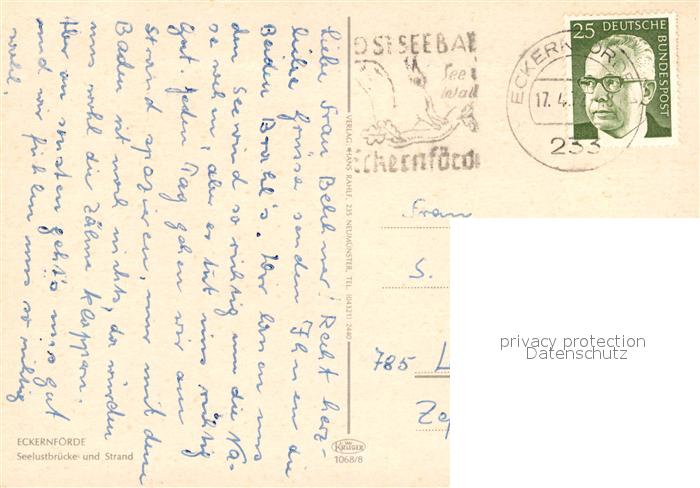 Liebe Frau Belchner! Recht herz-
liche Grüsse senden Ihnen die
Beiden Brahl's. Wir lassen uns
den Seewind so richtig um die Na-
se wehn, aber es tut uns richtig
Gut. Jeden Tag gehen wir am
Strand spazieren, nur mit dem
Baden ist noch nichts, da würden
uns wohl die Zähne klappern.
Aber ansonsten geht's uns gut
und wir fühlen uns so richtig
wohl.
ECKERNFÖRDE
Seelustbrücke und Strand
VERLAG HANS RAHLF, 235 NEUMÜNSTER, TEL. (04321) 2440
KRÜGER
1068/8
OSTSEEBAD
See
Wald
Eckernförde
ECKERNFÖRDE
17. 4.
233
25 DEUTSCHE
BUNDESPOST
Frau
S.
785 L
Zep
privacy protection
Datenschutz